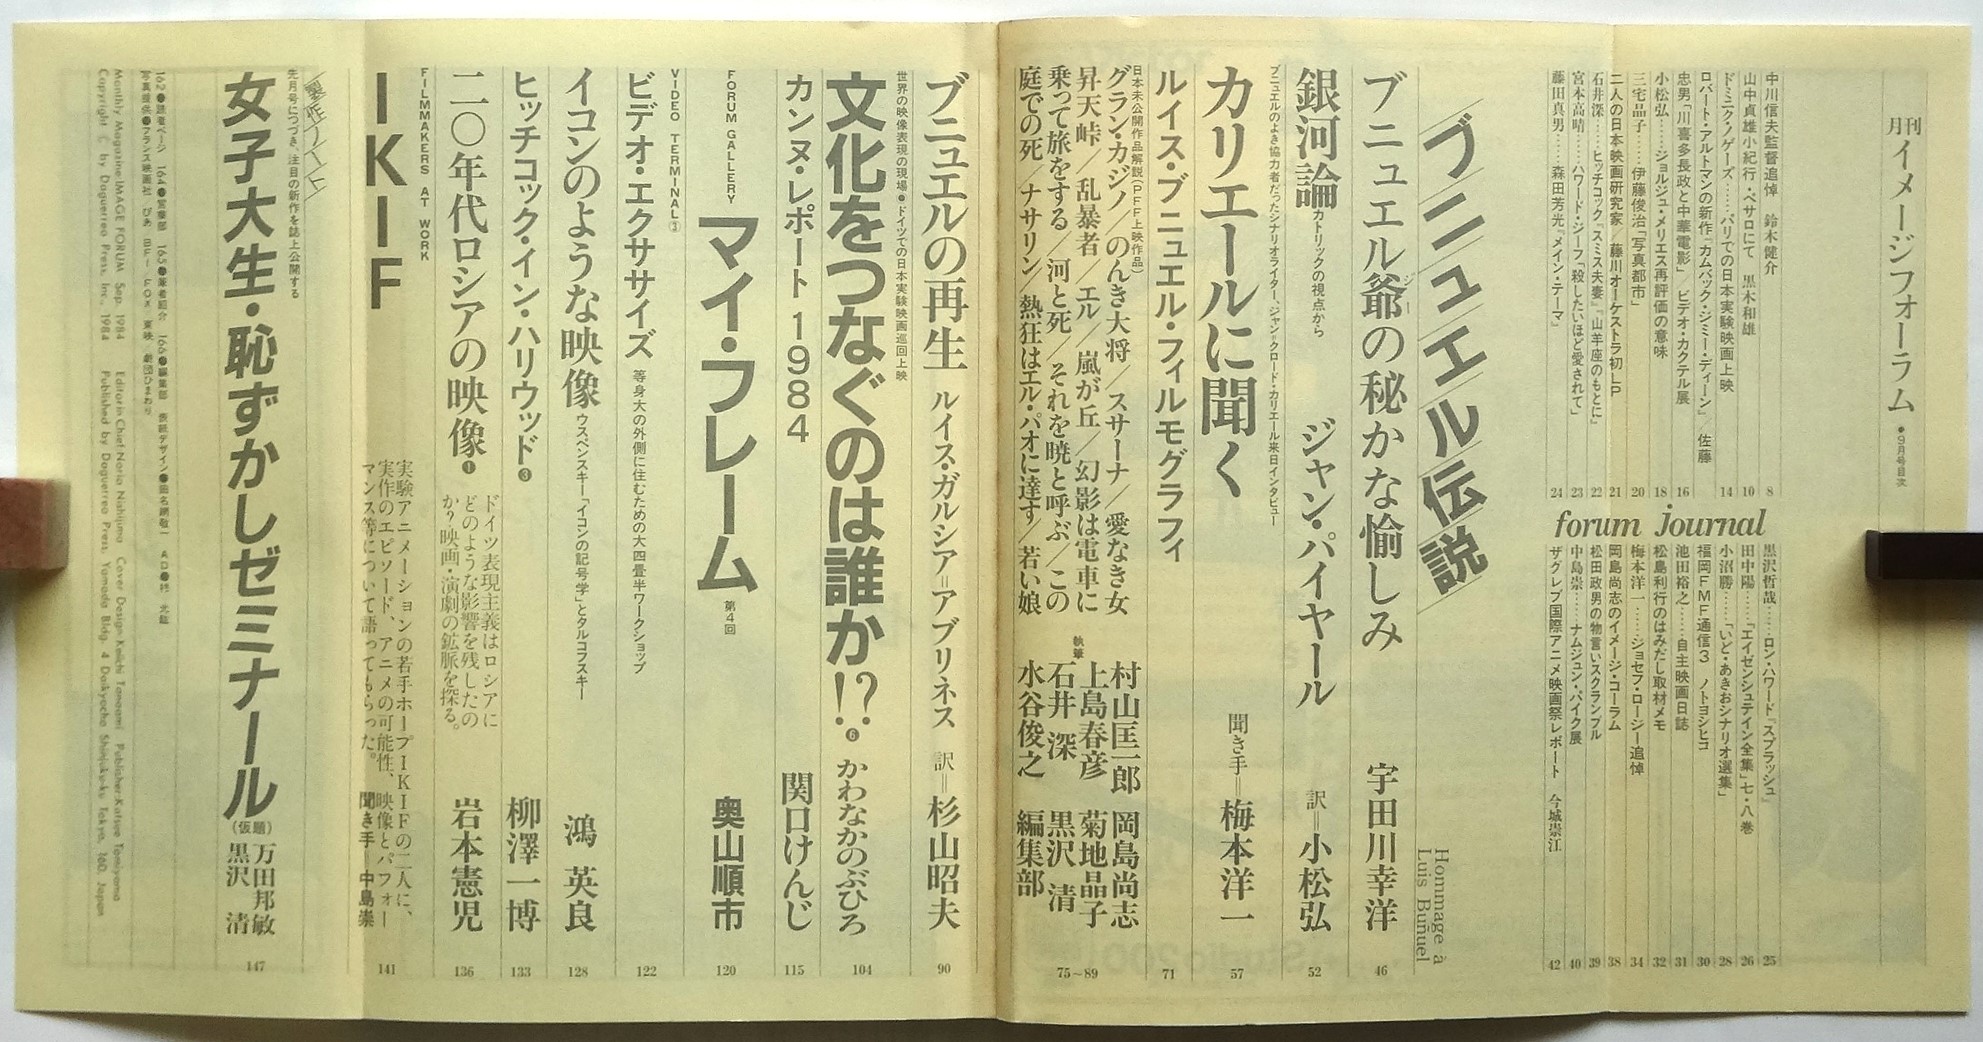 月刊イメージフォーラム●9月号目次
中川信夫監督追悼　鈴木健介 8
山中貞雄小紀行・ペサロにて　黒木和雄 10
ドミニク・ノゲーズ……パリでの日本実験映画上映 14
ロバート・アルトマンの新作『カムバック・ジミー・ディーン』／佐藤
忠男「川喜多長政と中華電影」　ビデオ・カクテル展 16
小松弘……ジョルジュ・メリエス再評価の意味 18
三宅晶子……伊藤俊治「写真都市」 20
二人の日本映画研究家／藤川オーケストラ初LP 21
石井深……ヒッチコック『スミス夫妻』『山羊座のもとに』 22
宮本高晴……ハワード・ジーフ『殺したいほど愛されて』 23
藤田真男……森田芳光『メイン・テーマ』 24
forum journal
黒沢哲哉……ロン・ハワード『スプラッシュ』 25
田中陽……「エイゼンシュテイン全集」七・八巻 26
小沼勝……「いど・あきおシナリオ選集」 28
福岡FMF通信3　ノトヨシヒコ 30
池田裕之……自主映画日誌 31
松島利行のはみだし取材メモ 32
梅本洋一……ジョセフ・ロージー追悼 34
岡島尚志のイメージ・コーラム 38
松田政男の物言いスクランブル 39
中島崇……ナムジュン・パイク展 40
ザグレブ国際アニメ映画祭レポート　今城崇江 42
ブニュエル伝説
Hommage à
Luis Buñuel
ブニュエル爺の秘かな愉しみ　宇田川幸洋 46
ジー
銀河論 カトリックの視点から　ジャン・パイヤール　訳＝小松弘 52
ブニュエルのよき協力者だったシナリオライター、ジャン=クロード・カリエール来日インタビュー
カリエールに聞く　聞き手＝梅本洋一 57
ルイス・ブニュエル・フィルモグラフィ 71
日本未公開作品解説(PFF上映作品)
グラン・カジノ／のんき大将／スサーナ／愛なき女
昇天峠／乱暴者／エル／嵐が丘／幻影は電車に
乗って旅をする／河と死／それを暁と呼ぶ／この
庭での死／ナサリン／熱狂はエル・パオに達す／若い娘
執筆
村山匡一郎　岡島尚志
上島春彦　菊地晶子
石井　深　黒沢　清
水谷俊之　編集部
75～89
ブニュエルの再生　ルイス・ガルシア＝アブリネス　訳＝杉山昭夫 90
世界の映像表現の現場●ドイツでの日本実験映画巡回上映
文化をつなぐのは誰か!?❻　かわなかのぶひろ 104
カンヌ・レポート1984　関口けんじ 115
FORUM GALLERY
マイ・フレーム 第4回　奥山順市 120
VIDEO TERMINAL③
ビデオ・エクササイズ 等身大の外側に住むための大四畳半ワークショップ 122
イコンのような映像 ウスペンスキー「イコンの記号学」とタルコフスキー　鴻　英良 128
ヒッチコック・イン・ハリウッド❸　柳澤一博 133
二〇年代ロシアの映像❶
ドイツ表現主義はロシアに
どのような影響を残したの
か？映画・演劇の鉱脈を探る。
岩本憲児 136
FILMMAKERS AT WORK
IKIF
実験アニメーションの若手ホープIKIFの二人に、
実作のエピソード、アニメの可能性、映像とパフォー
マンス等について語ってもらった。　聞き手＝中島崇 141
製作ノート
先月号につづき、注目の新作を誌上公開する
女子大生・恥ずかしゼミナール(仮題)
万田邦敏
黒沢　清
147
162●読者ページ　164●営業部　165●筆者紹介　166●編集部　表紙デザイン●田名網敬一　AD●
写真提供●フランス映画社　ぴあ　BFI　FOX　東映　劇団ひまわり
Monthly Magazine IMAGE FORUM Sep. 1984　Editor in Chief Norio Nishijima　Cover Design Keiichi Tanaami　Publisher Katsue Tomiyama
Copyright © by Daguerreo Press, Inc., 1984　Published by Daguerreo Press. Yamada Bldg. 4 Daikyocho Shinjuku-ku, Tokyo, 160, Japan